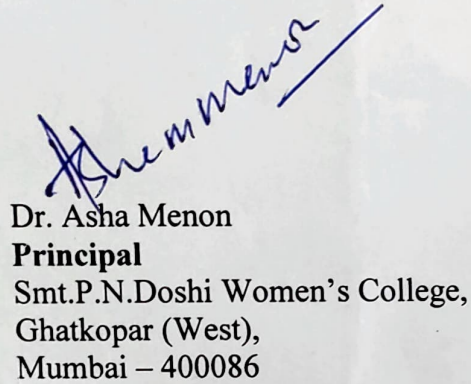 Asha Menon
Dr. Asha Menon
Principal
Smt.P.N.Doshi Women's College,
Ghatkopar (West),
Mumbai – 400086